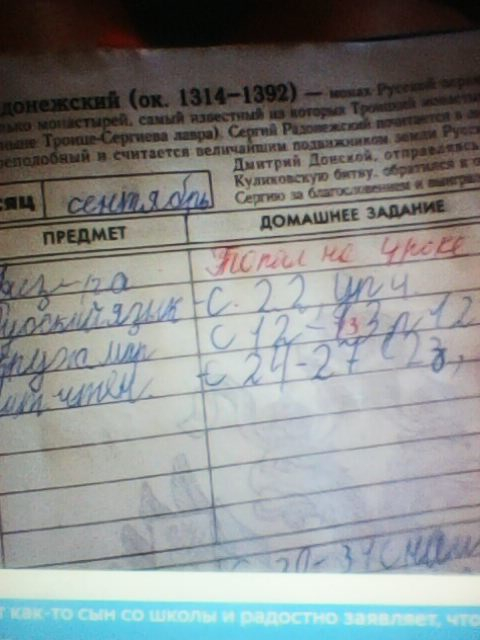 донежский (ок. 1314—1392) — монах Русской
лько монастырей, самый известный из которых Троицкий
ныне Троице-Сергиева лавра). Сергий Радонежский почитается в
реподобный и считается величайшим подвижником земли Русс
Дмитрий Донской, отправляясь
Куликовскую битву, обратился к
Сергию за благословением и выиграл
сяц сентябрь
ПРЕДМЕТ ДОМАШНЕЕ ЗАДАНИЕ
Физ-ра Топал на уроке
Русский язык с. 22 упр 4
с 12-13
с 24-27
т как-то сын со школы и радостно заявляет, что